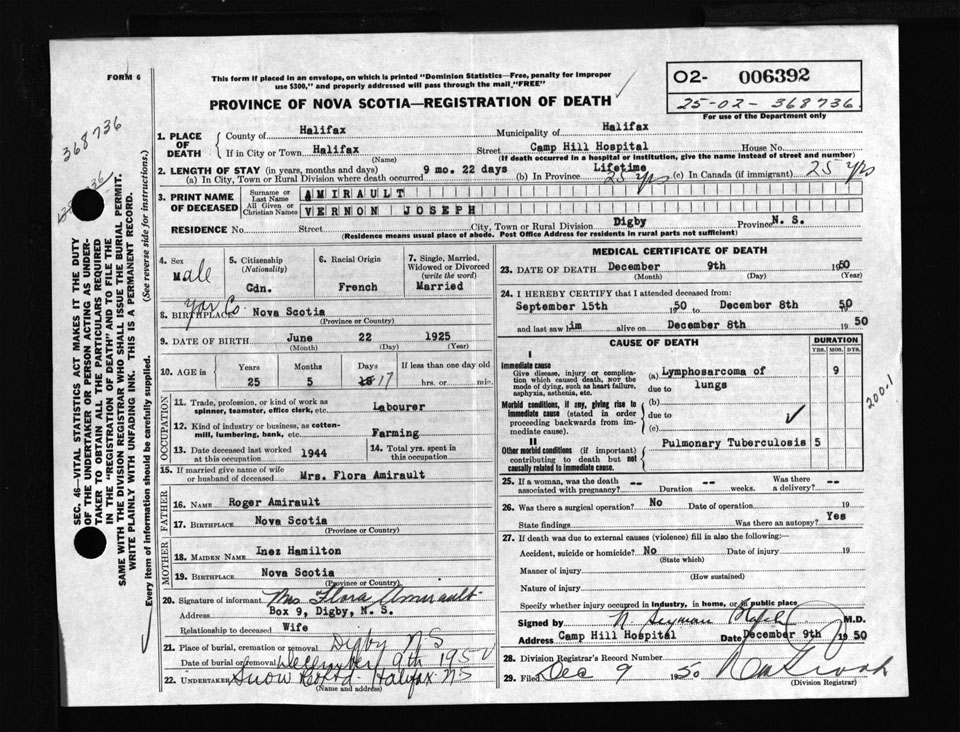 FORM 6
This form if placed in an envelope, on which is printed "Dominion Statistics—Free, penalty for improper
use $300," and properly addressed will pass through the mail "FREE"
PROVINCE OF NOVA SCOTIA—REGISTRATION OF DEATH
O2- 006392
25-02-368736
For use of the Department only
368736
SEC. 46—VITAL STATISTICS ACT MAKES IT THE DUTY
OF THE UNDERTAKER OR PERSON ACTING AS UNDER-
TAKER TO OBTAIN ALL THE PARTICULARS REQUIRED
IN THE "REGISTRATION OF DEATH" AND TO FILE THE
SAME WITH THE DIVISION REGISTRAR WHO SHALL ISSUE THE BURIAL PERMIT.
WRITE PLAINLY WITH UNFADING INK. THIS IS A PERMANENT RECORD.
Every item of information should be carefully supplied. (See reverse side for instructions.)
1. PLACE OF DEATH
County of Halifax Municipality of Halifax
If in City or Town Halifax Street Camp Hill Hospital House No.
(Name) (If death occurred in a hospital or institution, give the name instead of street and number)
2. LENGTH OF STAY (in years, months and days)
(a) In City, Town or Rural Division where death occurred 9 mo. 22 days (b) In Province Lifetime 25 yrs (c) In Canada (if immigrant) 25 yrs
3. PRINT NAME OF DECEASED
Surname or Last Name AMIRAULT
All Given or Christian Names VERNON JOSEPH
RESIDENCE No. Street City, Town or Rural Division Digby Province N. S.
(Residence means usual place of abode. Post Office Address for residents in rural parts not sufficient)
4. Sex Male
5. Citizenship (Nationality) Cdn.
6. Racial Origin French
7. Single, Married, Widowed or Divorced (write the word) Married
Yar Co.
8. BIRTHPLACE Nova Scotia
(Province or Country)
9. DATE OF BIRTH June 22 1925
(Month) (Day) (Year)
10. AGE in Years Months Days If less than one day old
25 5 17 hrs. or min.
OCCUPATION
11. Trade, profession, or kind of work as spinner, teamster, office clerk, etc. Labourer
12. Kind of industry or business, as cotton-mill, lumbering, bank, etc. Farming
13. Date deceased last worked at this occupation 1944
14. Total yrs. spent in this occupation
15. If married give name of wife or husband of deceased Mrs. Flora Amirault
FATHER
16. NAME Roger Amirault
17. BIRTHPLACE Nova Scotia
(Province or Country)
MOTHER
18. MAIDEN NAME Inez Hamilton
19. BIRTHPLACE Nova Scotia
(Province or Country)
20. Signature of informant Mrs Flora Amirault
Address Box 9, Digby, N. S.
Relationship to deceased Wife
21. Place of burial, cremation or removal Digby NS
Date of burial or removal December 9th 1950
22. UNDERTAKER Snow Halifax NS
(Name and address)
MEDICAL CERTIFICATE OF DEATH
23. DATE OF DEATH December 9th 1950
(Month) (Day) (Year)
24. I HEREBY CERTIFY that I attended deceased from:
September 15th 1950 to December 8th 50
and last saw him alive on December 8th 1950
CAUSE OF DEATH DURATION
YRS. MOS. DYS.
I
Immediate cause
Give disease, injury or complication which caused death, NOT the mode of dying, such as heart failure, asphyxia, asthenia, etc.
(a) Lymphosarcoma of 9
due to lungs
Morbid conditions, if any, giving rise to immediate cause (stated in order proceeding backwards from immediate cause).
(b)
due to
(c)
200-1
II
Other morbid conditions (if important) contributing to death but not causally related to immediate cause.
Pulmonary Tuberculosis 5
25. If a woman, was the death associated with pregnancy? -- Duration -- weeks. Was there a delivery? --
26. Was there a surgical operation? No Date of operation 19
State findings Was there an autopsy? Yes
27. If death was due to external causes (violence) fill in also the following:—
Accident, suicide or homicide? No Date of injury 19
(State which)
Manner of injury
(How sustained)
Nature of injury
Specify whether injury occurred in industry, in home, or in public place
Signed by N. M.D.
Address Camp Hill Hospital Date December 9th 1950
28. Division Registrar's Record Number
29. Filed Dec 9 1950
(Division Registrar)